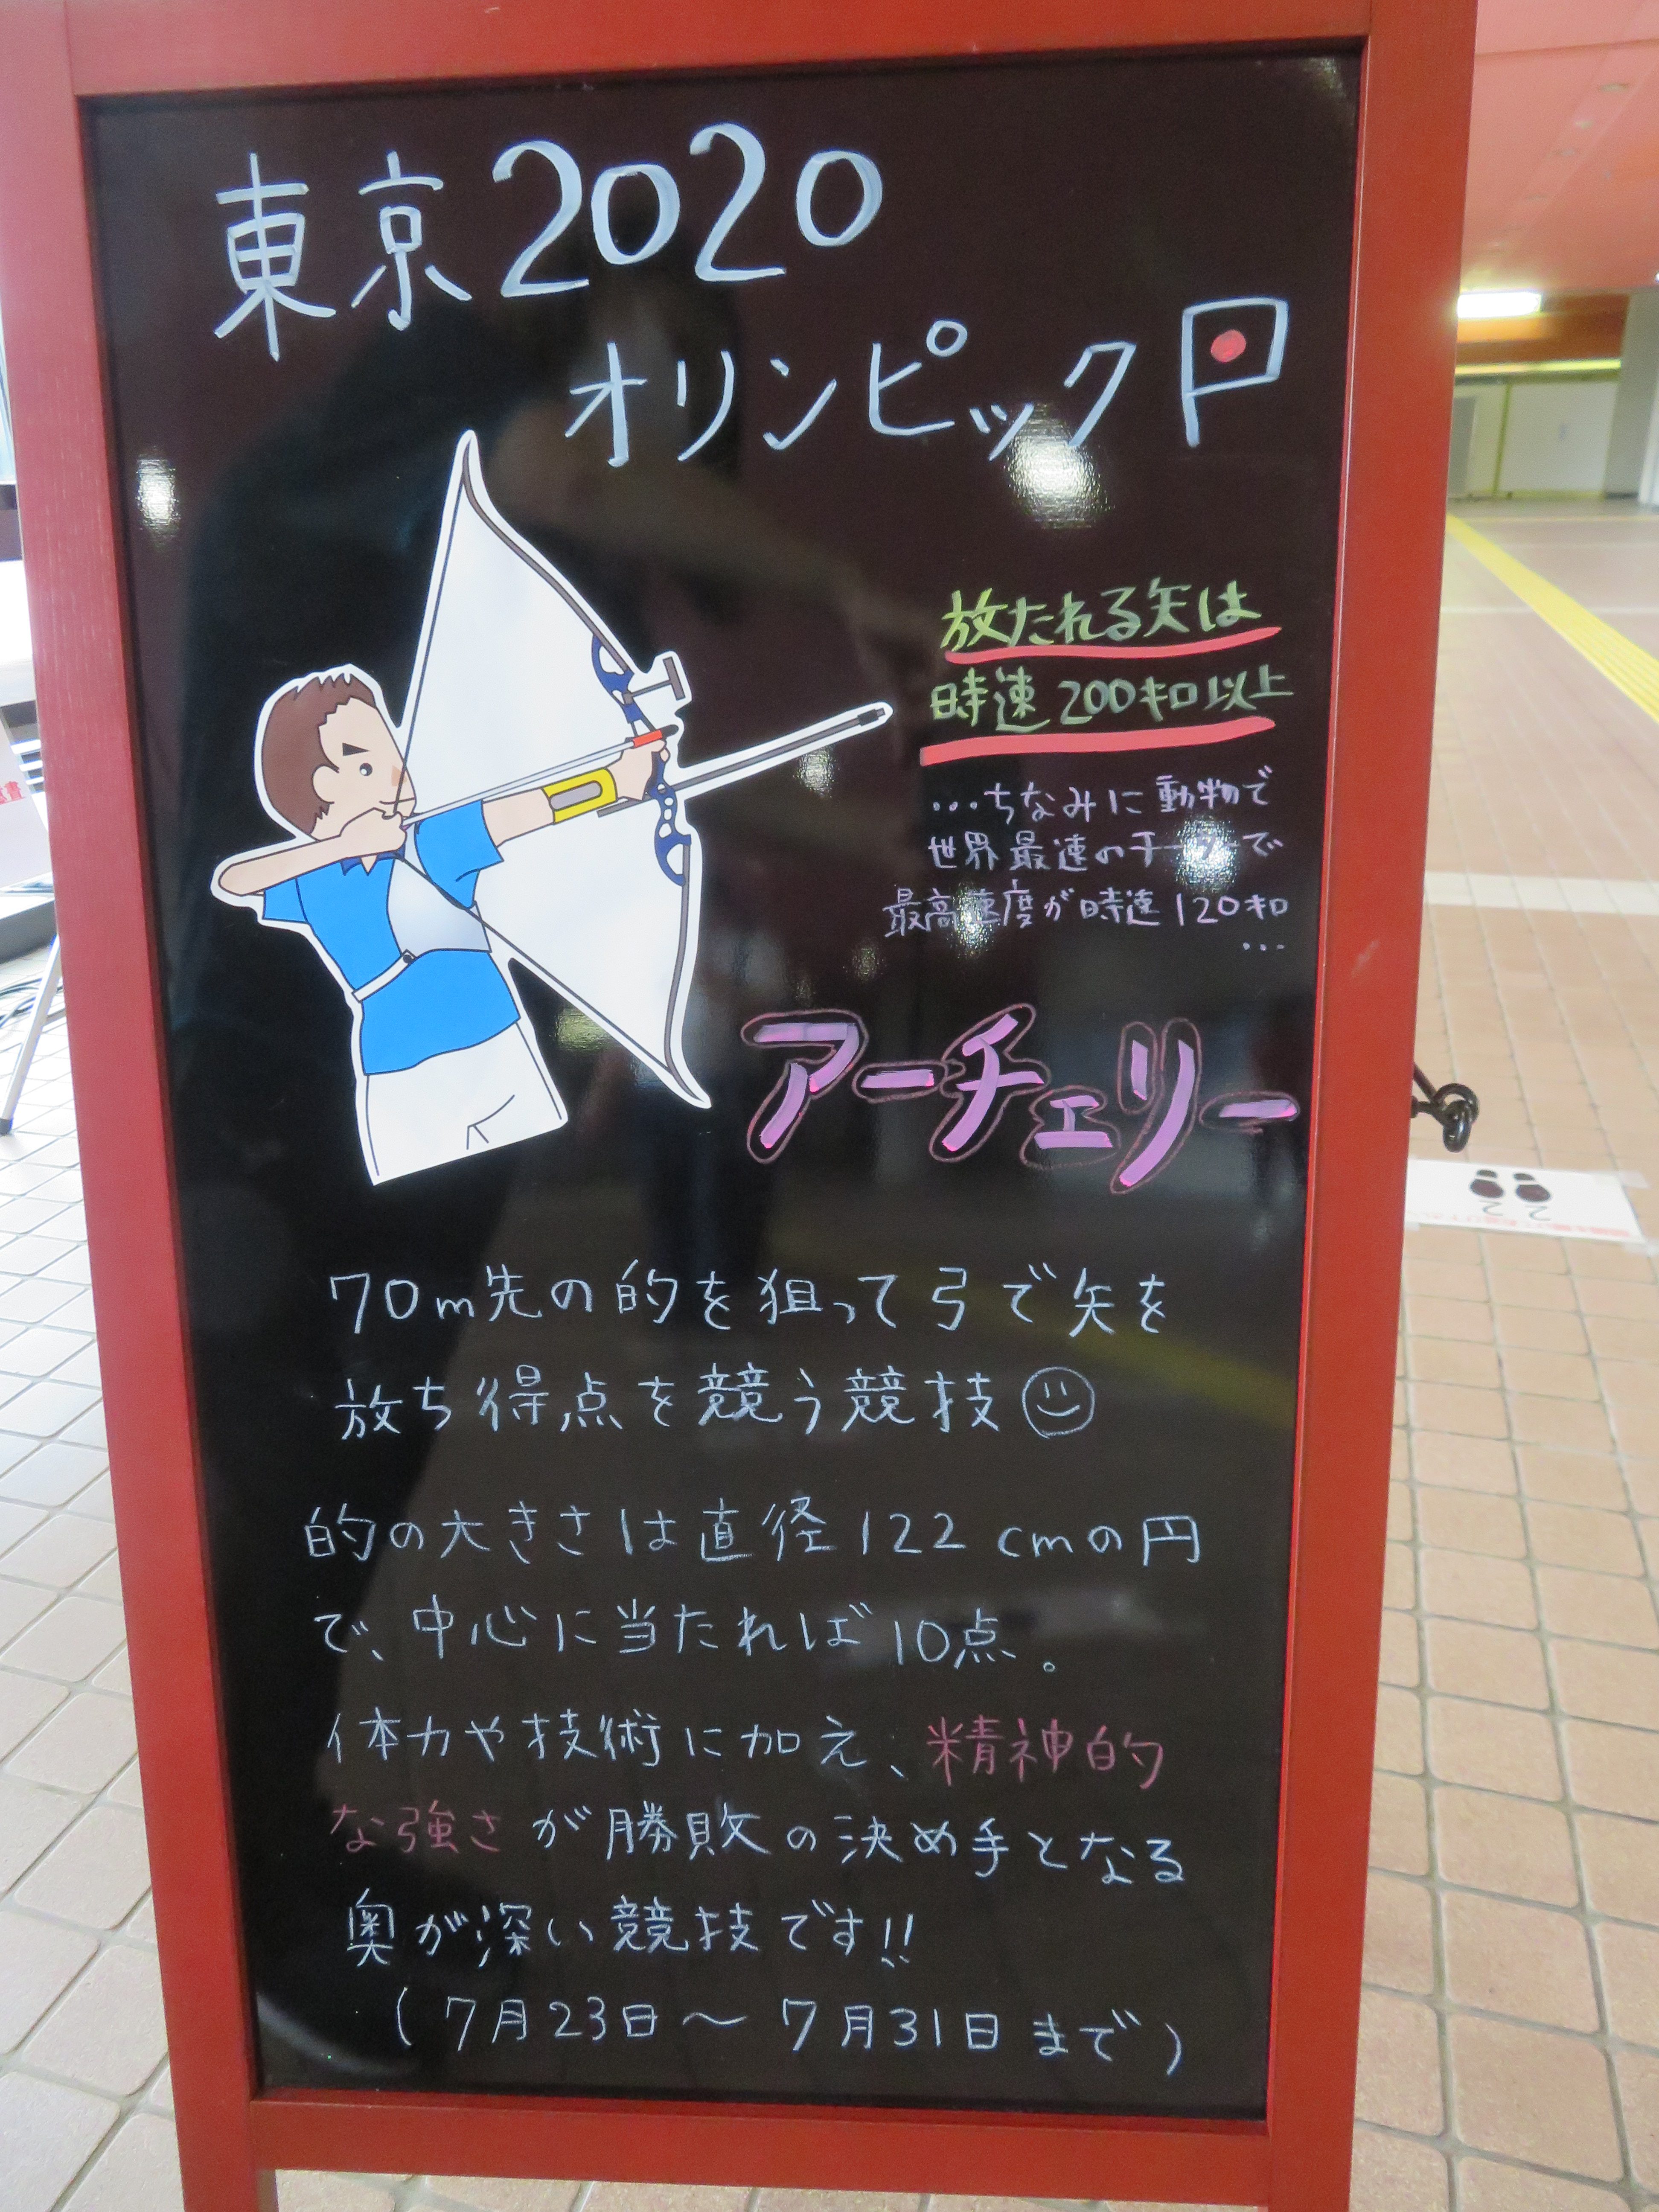 東京2020
オリンピック
放たれる矢は
時速200キロ以上
…ちなみに動物で
世界最速のチーターで
最高速度が時速120キロ
…
アーチェリー
70m先の的を狙って弓で矢を
放ち得点を競う競技
的の大きさは直径122cmの円
で、中心に当たれば10点。
体力や技術に加え、精神的
な強さが勝敗の決め手となる
奥が深い競技です!!
(7月23日〜7月31日まで)